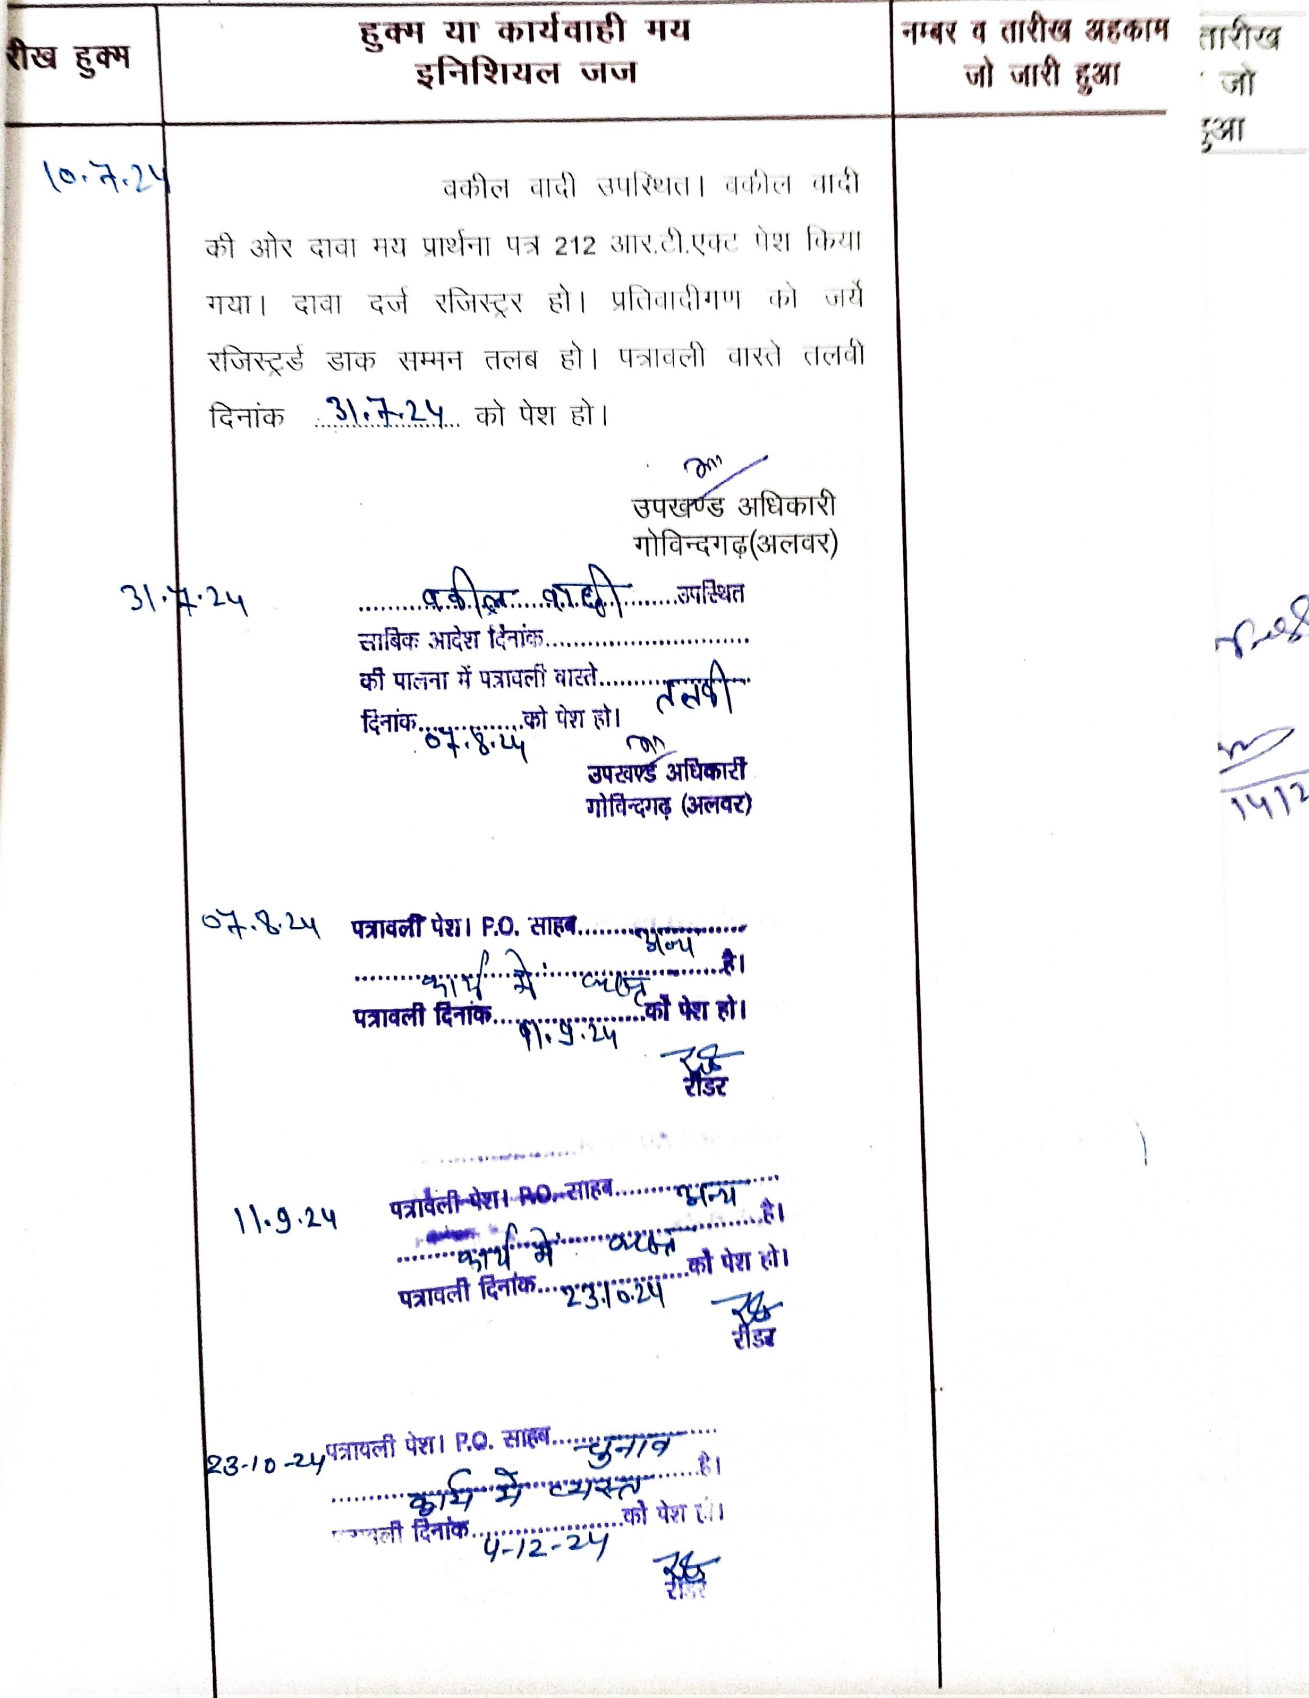 रीख हुक्म
हुक्म या कार्यवाही मय
इनिशियल जज
नम्बर व तारीख अहकाम
जो जारी हुआ
तारीख
जो
हुआ
10.7.24
वकील वादी उपस्थित। वकील वादी
की ओर दावा मय प्रार्थना पत्र 212 आर.टी.एक्ट पेश किया
गया। दावा दर्ज रजिस्ट्रर हो। प्रतिवादीगण को जर्ये
रजिस्ट्रर्ड डाक सम्मन तलब हो। पत्रावली वास्ते तलवी
दिनांक 31.7.24 को पेश हो।
उपखण्ड अधिकारी
गोविन्दगढ़(अलवर)
31.7.24 वकील वादी उपस्थित
साबिक आदेश दिनांक
की पालना में पत्रावली वास्ते तलवी
दिनांक 07.8.24 को पेश हो।
उपखण्ड अधिकारी
गोविन्दगढ़ (अलवर)
07.8.24 पत्रावली पेश। P.O. साहब अन्य
कार्य में व्यस्त है।
पत्रावली दिनांक 11.9.24 को पेश हो।
रीडर
11.9.24 पत्रावली पेश। P.O. साहब अन्य
कार्य में व्यस्त है।
पत्रावली दिनांक 23.10.24 को पेश हो।
रीडर
23-10-24 पत्रावली पेश। P.O. साहब चुनाव
कार्य में व्यस्त है।
पत्रावली दिनांक 4-12-24 को पेश हो।
रीडर